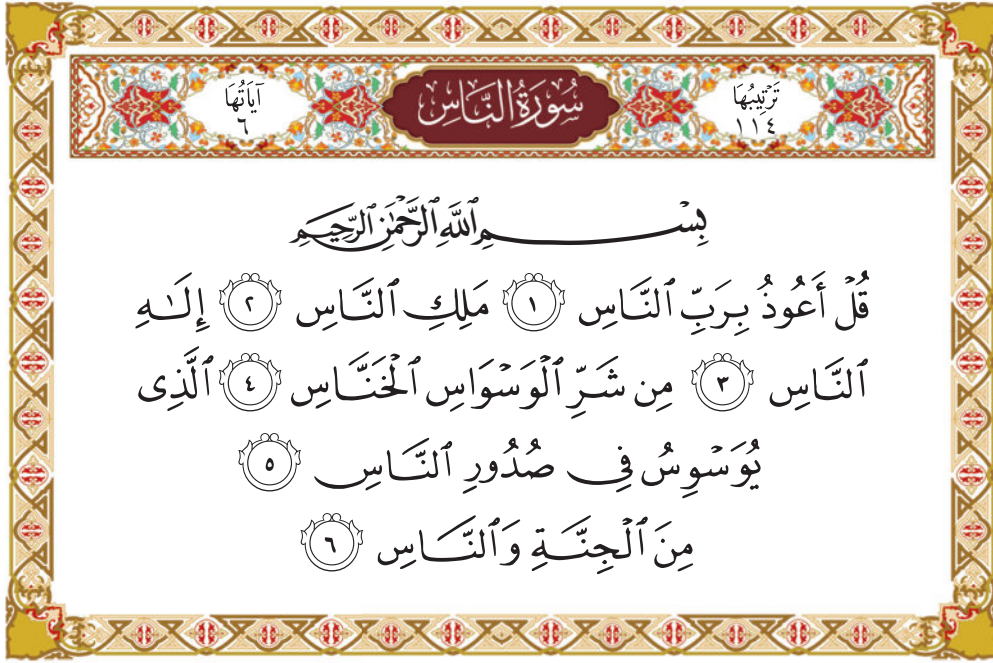 تَرْتِيبُهَا
١١٤
سُورَةُ النَّاسِ
آيَاتُهَا
٦
بِسْمِ ٱللَّهِ ٱلرَّحْمَٰنِ ٱلرَّحِيمِ
قُلْ أَعُوذُ بِرَبِّ ٱلنَّاسِ ١ مَلِكِ ٱلنَّاسِ ٢ إِلَـٰهِ
ٱلنَّاسِ ٣ مِن شَرِّ ٱلْوَسْوَاسِ ٱلْخَنَّاسِ ٤ ٱلَّذِى
يُوَسْوِسُ فِى صُدُورِ ٱلنَّاسِ ٥
مِنَ ٱلْجِنَّةِ وَٱلنَّاسِ ٦